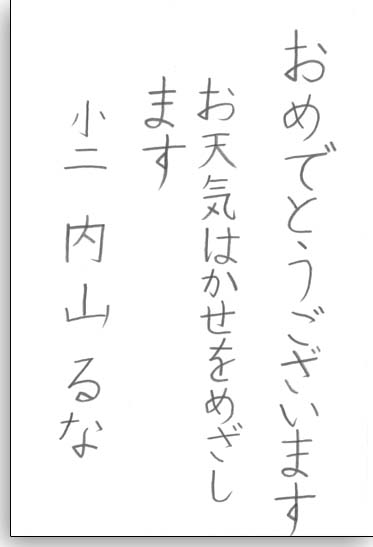 おめでとうございます
お天気はかせをめざし
ます
小二 内山るな